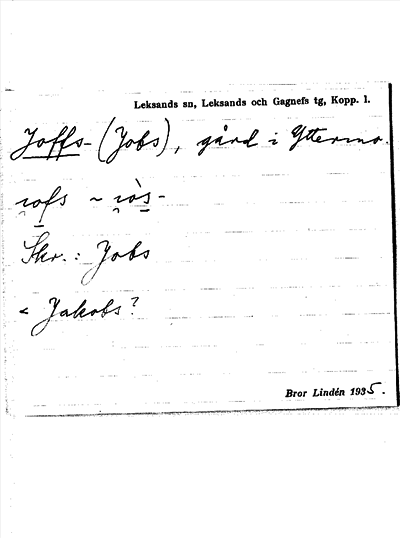 Leksands sn, Leksands och Gagnefs tg, Kopp. l.
Joffs- (Jobs), gård i Yttermo.
Skr.: Jobs
< Jakobs?
Bror Lindén 1935.